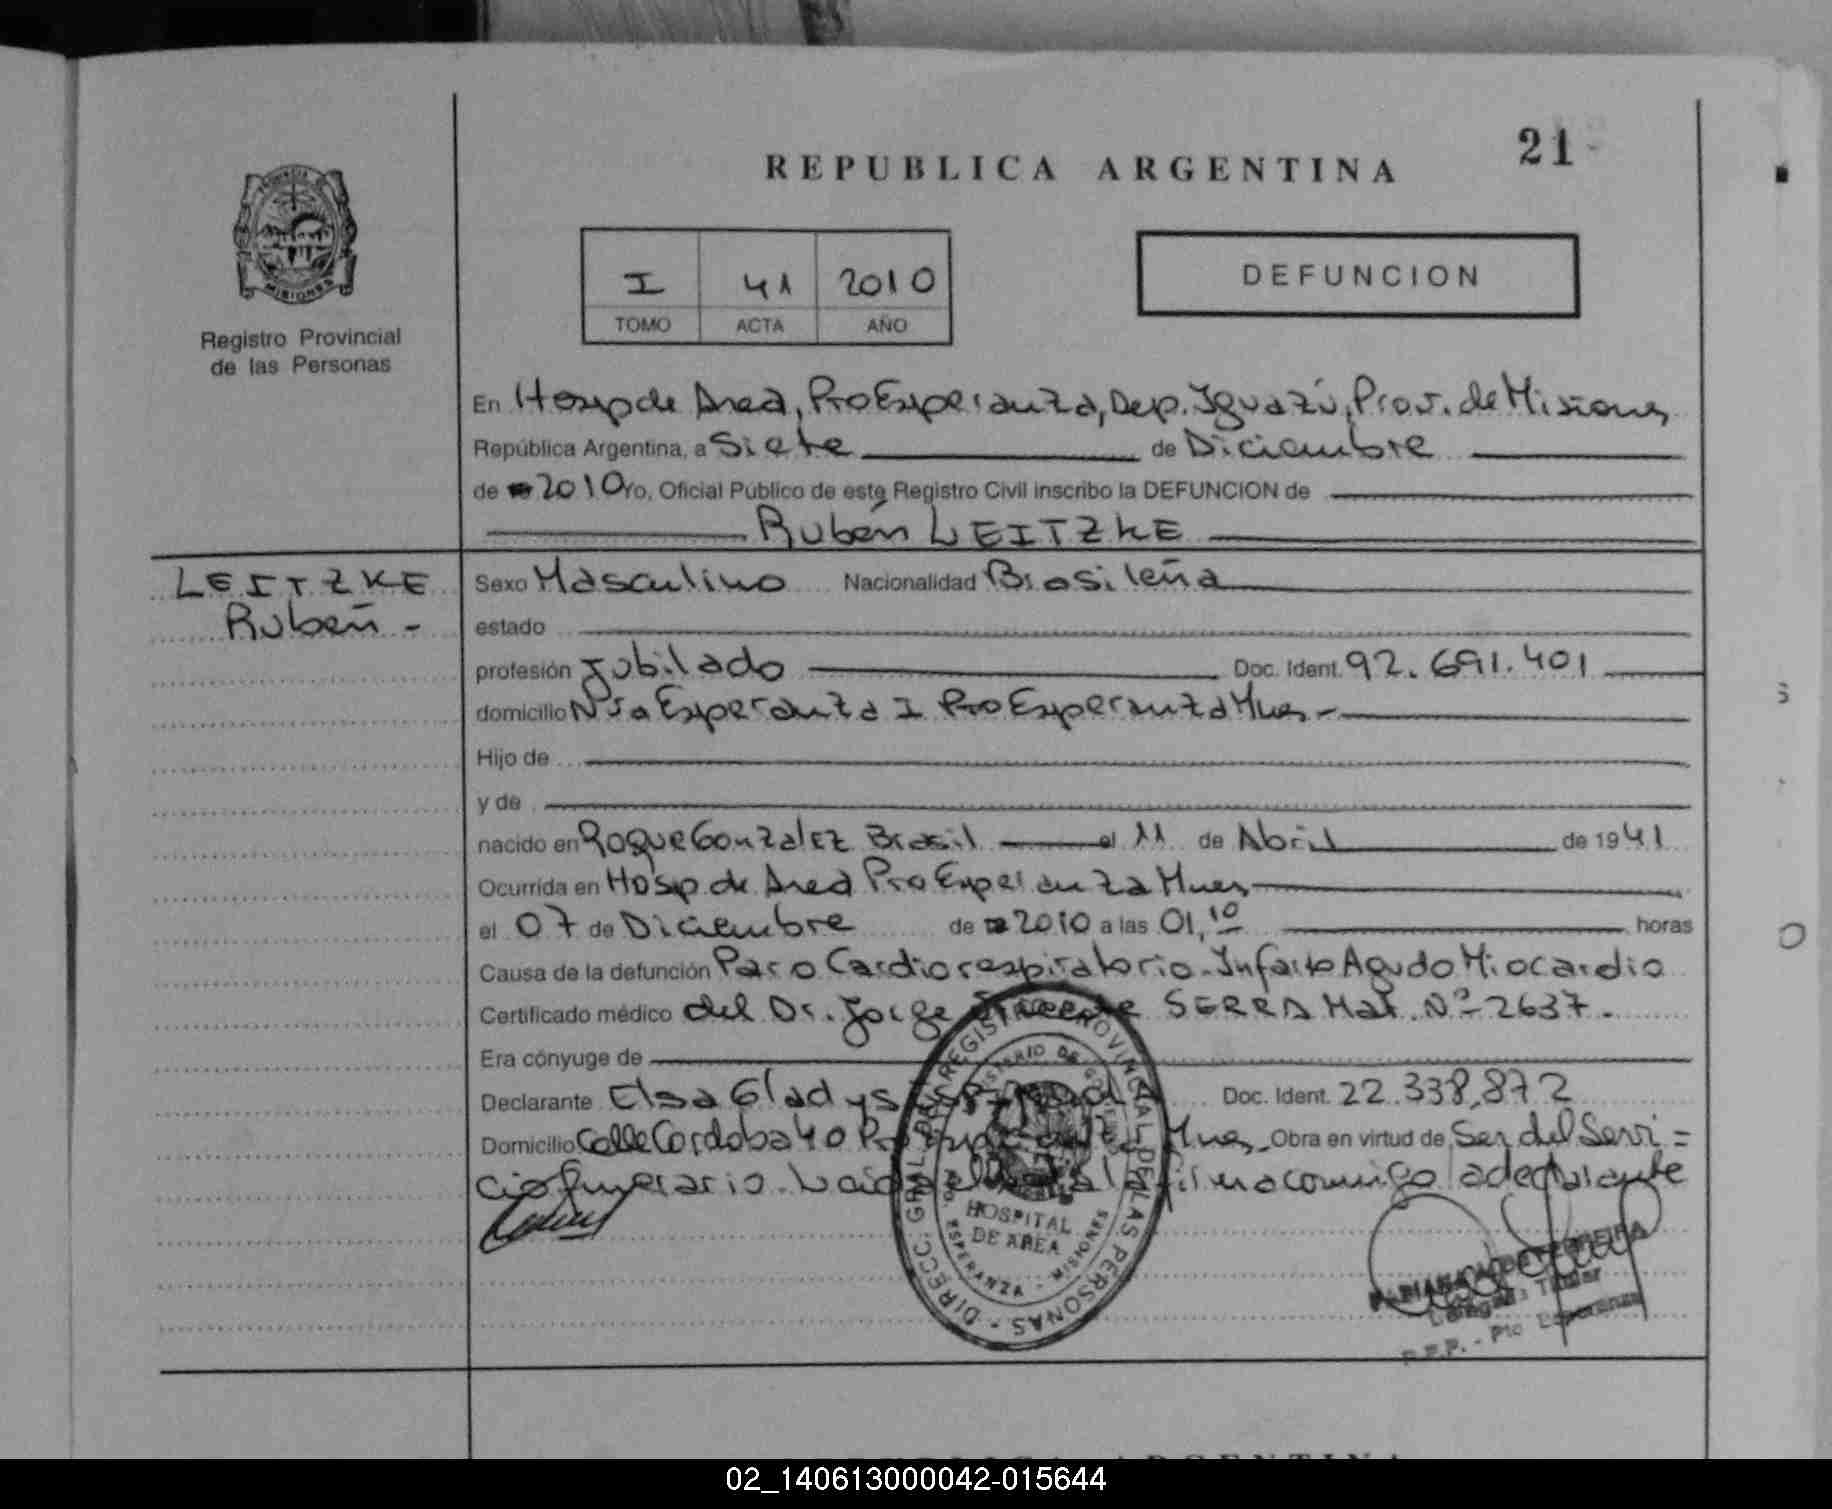 REPUBLICA ARGENTINA
21
PROVINCIA DE
MISIONES
Registro Provincial
de las Personas
I 41 2010
TOMO ACTA AÑO
DEFUNCION
En Hosp de Area, Pto Esperanza, Dep. Iguazú, Prov. de Misiones
República Argentina, a Siete de Diciembre
de 2010 Yo, Oficial Público de este Registro Civil inscribo la DEFUNCION de
Rubén LEITZKE
LEITZKE
Rubén -
Sexo Masculino Nacionalidad Brasileña
estado
profesión Jubilado Doc. Ident. 92.691.401
domicilio Nva Esperanza I Pto Esperanza Mnes -
Hijo de
y de
nacido en Roque Gonzalez Brasil el 11 de Abril de 1941
Ocurrida en Hosp. de Area Pto Esperanza Mnes
el 07 de Diciembre de 2010 a las 01,10 horas
Causa de la defunción Paro Cardiorespiratorio - Infarto Agudo Miocardio
Certificado médico del Dr. Jorge SERRA Mat. Nº 2637.
Era cónyuge de
Declarante Elsa Gladys Doc. Ident. 22.338,872
Domicilio Calle Cordoba 40 Pto Esperanza Mnes. Obra en virtud de Ser del Servi=
cio funerario. Leida el acta la firma comigo el declarante
DIRECC. GRAL. DEL REGISTRO PROVINCIAL DE LAS PERSONAS -
MINISTERIO DE GOBIERNO
HOSPITAL
DE AREA
ESPERANZA - MISIONES
FERREIRA
Titular
- Pto Esperanza
02_140613000042-015644